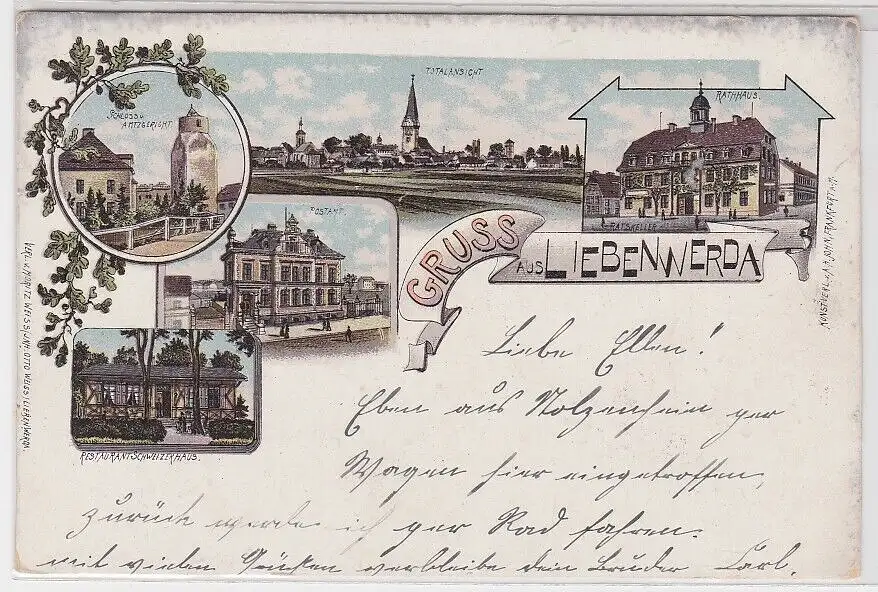 TOTALANSICHT
SCHLOSS U.
AMTSGERICHT.
RATHHAUS.
POSTAMT.
RATSKELLER
GRUSS
AUS LIEBENWERDA
RESTAURANT SCHWEIZERHAUS.
VERL. V. MORITZ WEISS, INH: OTTO WEISS, LIEBENWERDA.
KUNSTVERL. v. A. JOHN, FRANKFURT
Liebe Ellen!
Eben aus Stolzenhein per
Wagen hier eingetroffen,
zurück werde ich per Rad fahren.
mit vielen Grüßen verbleibe dein Bruder Carl.